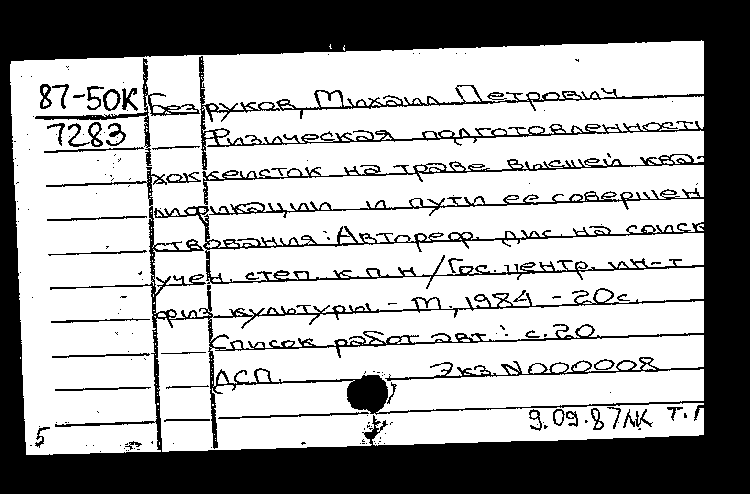 87-50К Безруков, Михаил Петрович
7283 Физическая подготовленность
хоккеисток на траве высшей ква-
лификации и пути ее совершен
ствования: Автореф. дис. на соиск
учен. степ. к.п.н./Гос. центр. ин-т
физ. культуры. - М., 1984 - 20с.
Список работ авт.: с.20
ДСП. Экз. N000008
5 9.09.87 ЛК Т.Г